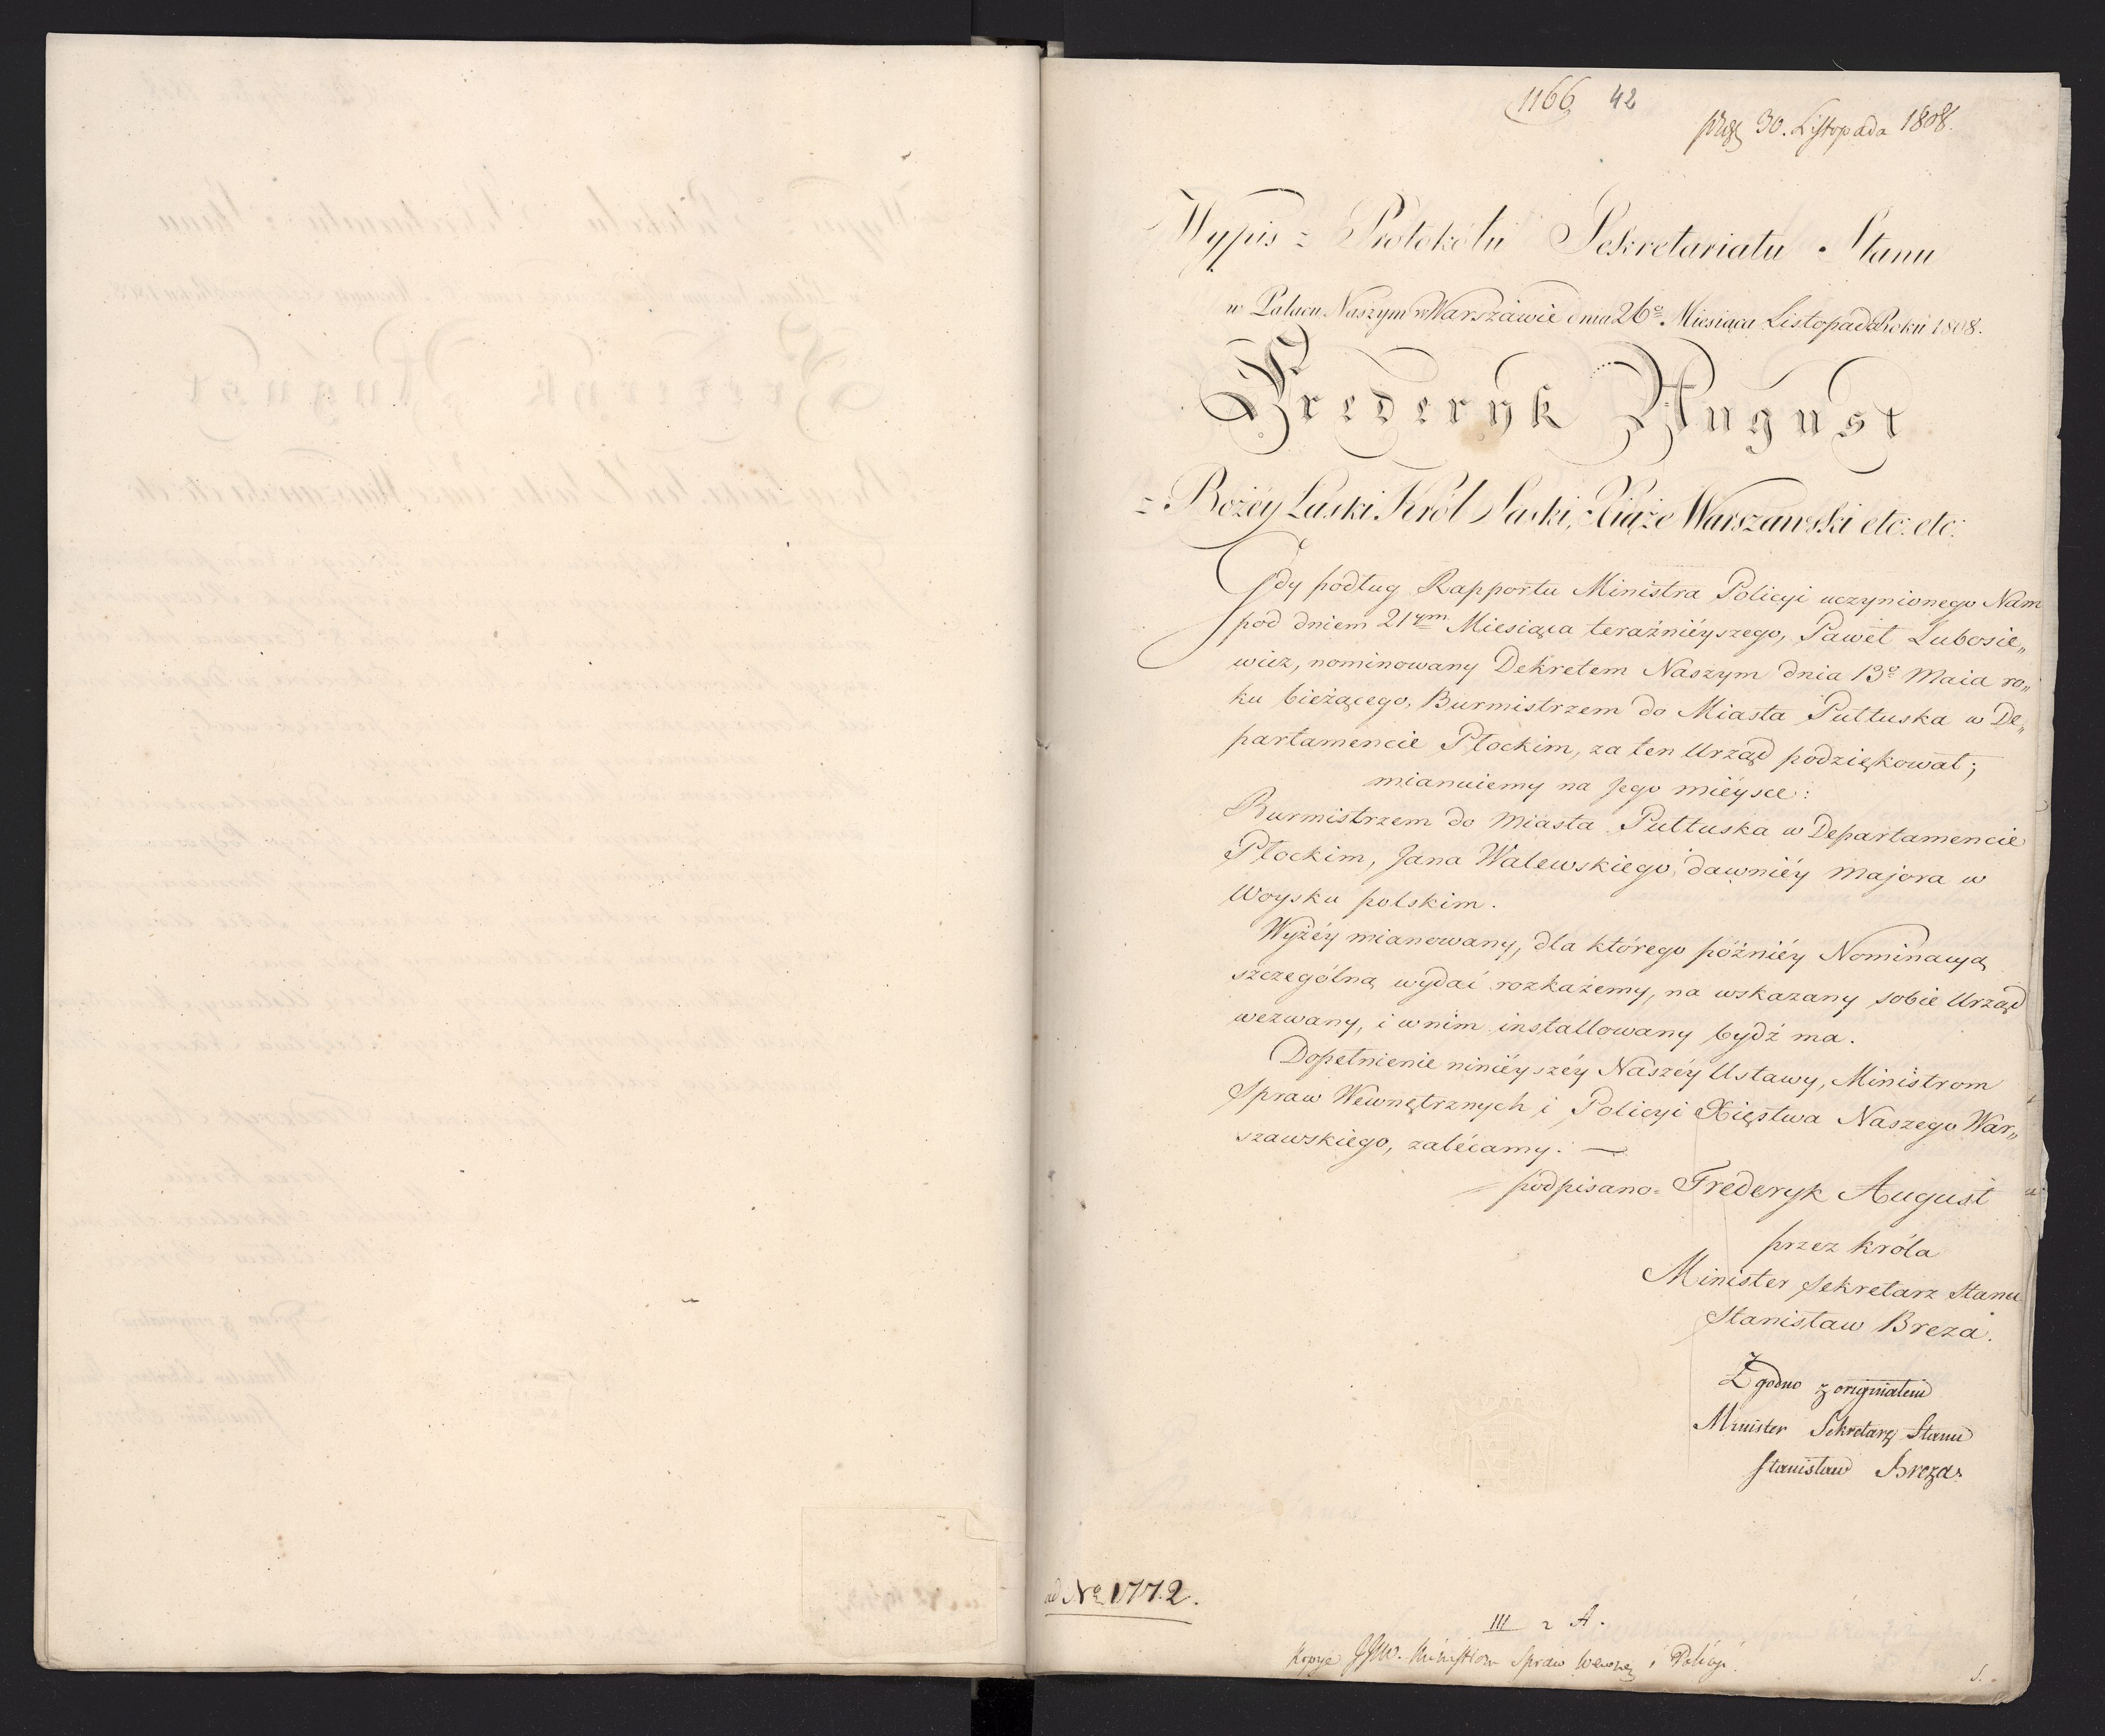 1166 42
30. Listopada 1808.
Wypis z Protokółu Sekretariatu Stanu
w Pałacu Naszym w Warszawie dnia 26º Miesiąca Listopada Roku 1808.
Frederyk August
z Bożéy Łaski Król Saski, Xiąże Warszawski etc: etc:
Gdy podług Rapportu Ministra Policyi uczynionego Nam
pod dniem 21ym Miesiąca teraźniéyszego, Paweł Lubosie„
wicz, nominowany Dekretem Naszym dnia 13º Maia ro„
ku bieżącego, Burmistrzem do Miasta Pułtuska w De„
partamencie Płockim, za ten Urząd podziękował;
mianuiemy na Jego miéysce:
Burmistrzem do Miasta Pułtuska w Departamencie
Płockim, Jana Walewskiego dawniéy Majora w
Woysku polskim.
Wyżéy mianowany, dla którego późniéy Nominacyą
szczególną wydać rozkażemy, na wskazany sobie Urząd
wezwany, i w nim installowany bydź ma.
Dopełnienie ninieyszéy Naszéy Ustawy, Ministrom
Spraw Wewnętrznych i Policyi Xięstwa Naszego War„
szawskiego, zalécamy. —
podpisano: Frederyk August
przez króla
Minister Sekretarz Stanu
Stanisław Breza.
Zgodno z originałem
Minister Sekretarz Stanu
Stanisław Breza
ad Nº 1772.
III 2 A.
Kopye JJW. Ministrom Spraw Wewnę i Policyi.